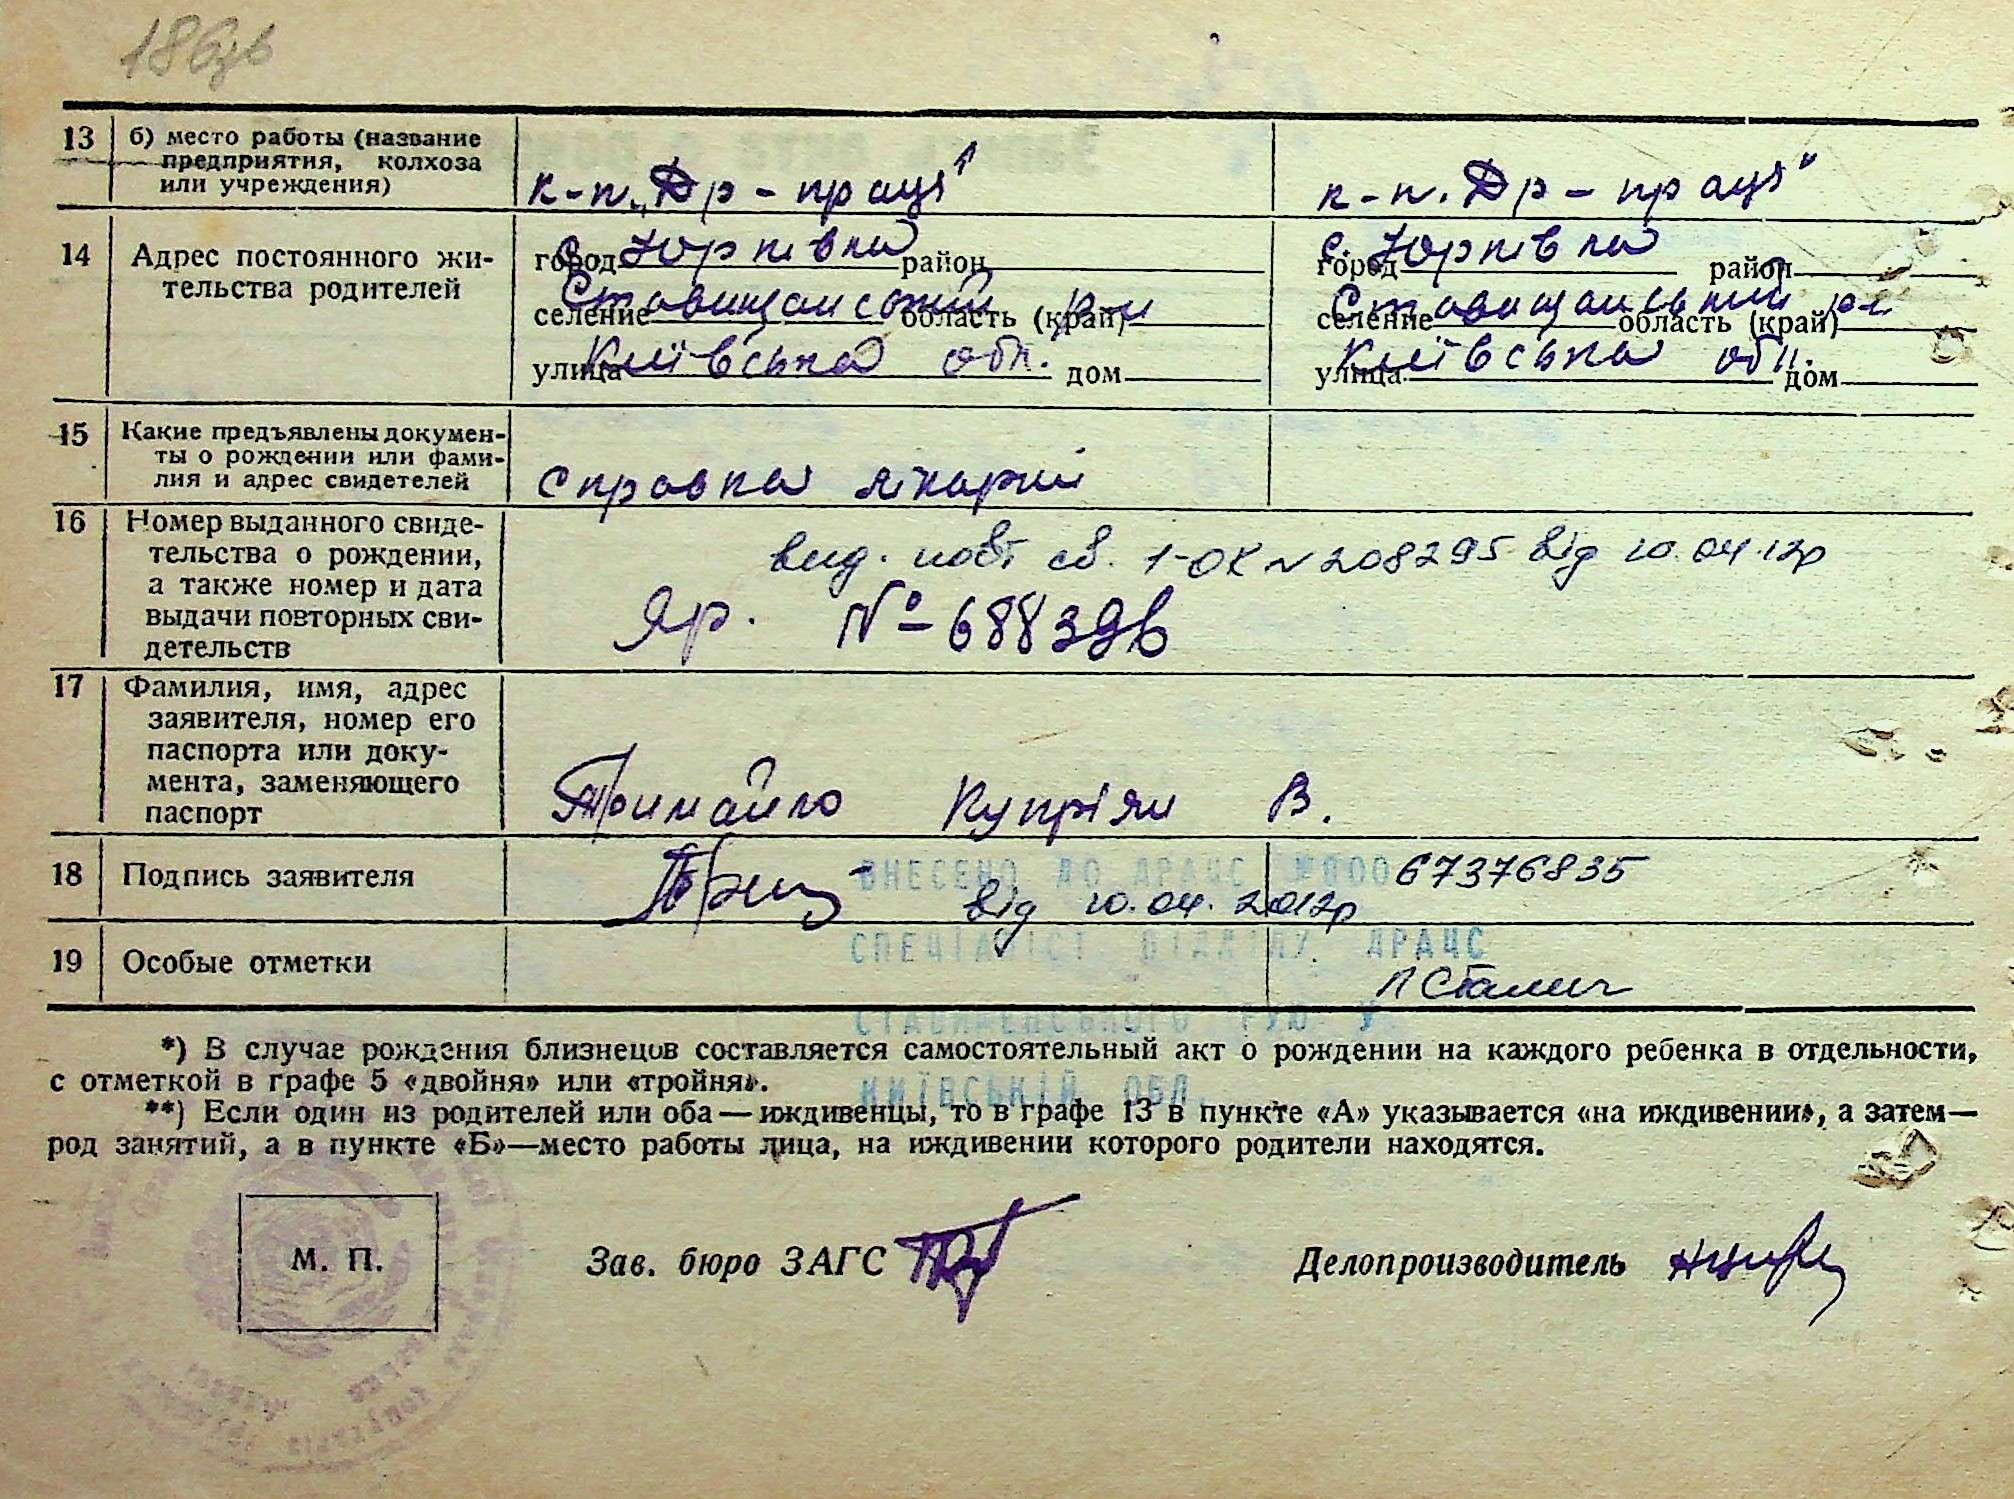 186зв
13 б) место работы (название
предприятия, колхоза
или учреждения)
к-п. „Др-праці" к-п. Др-праці"
14 Адрес постоянного жи-
тельства родителей
город с. Юрківка район
селение Ставищанський р-н область (край)
улица Київська обл. дом
город с. Юрківка район
селение Ставищанський р-н область (край)
улица Київська обл. дом
15 Какие предъявлены докумен-
ты о рождении или фами-
лия и адрес свидетелей
справка лікарні
16 Номер выданного свиде-
тельства о рождении,
а также номер и дата
выдачи повторных сви-
детельств
вид. повт св. 1-ОК N 208295 від 10.04.12р
Яр. №-688396
17 Фамилия, имя, адрес
заявителя, номер его
паспорта или доку-
мента, заменяющего
паспорт
Примайло Купріян В.
18 Подпись заявителя
ВНЕСЕНО ДО ДРАЦС №00067376835
від 10.04.2012р
СПЕЦІАЛІСТ ВІДДІЛУ ДРАЦС
19 Особые отметки
СТАВИЩЕНСЬКОГО РУЮ У
КИЇВСЬКІЙ ОБЛ.
*) В случае рождения близнецов составляется самостоятельный акт о рождении на каждого ребенка в отдельности,
с отметкой в графе 5 «двойня» или «тройня».
**) Если один из родителей или оба — иждивенцы, то в графе 13 в пункте «А» указывается «на иждивении», а затем—
род занятий, а в пункте «Б»—место работы лица, на иждивении которого родители находятся.
М. П.
Зав. бюро ЗАГС
Делопроизводитель